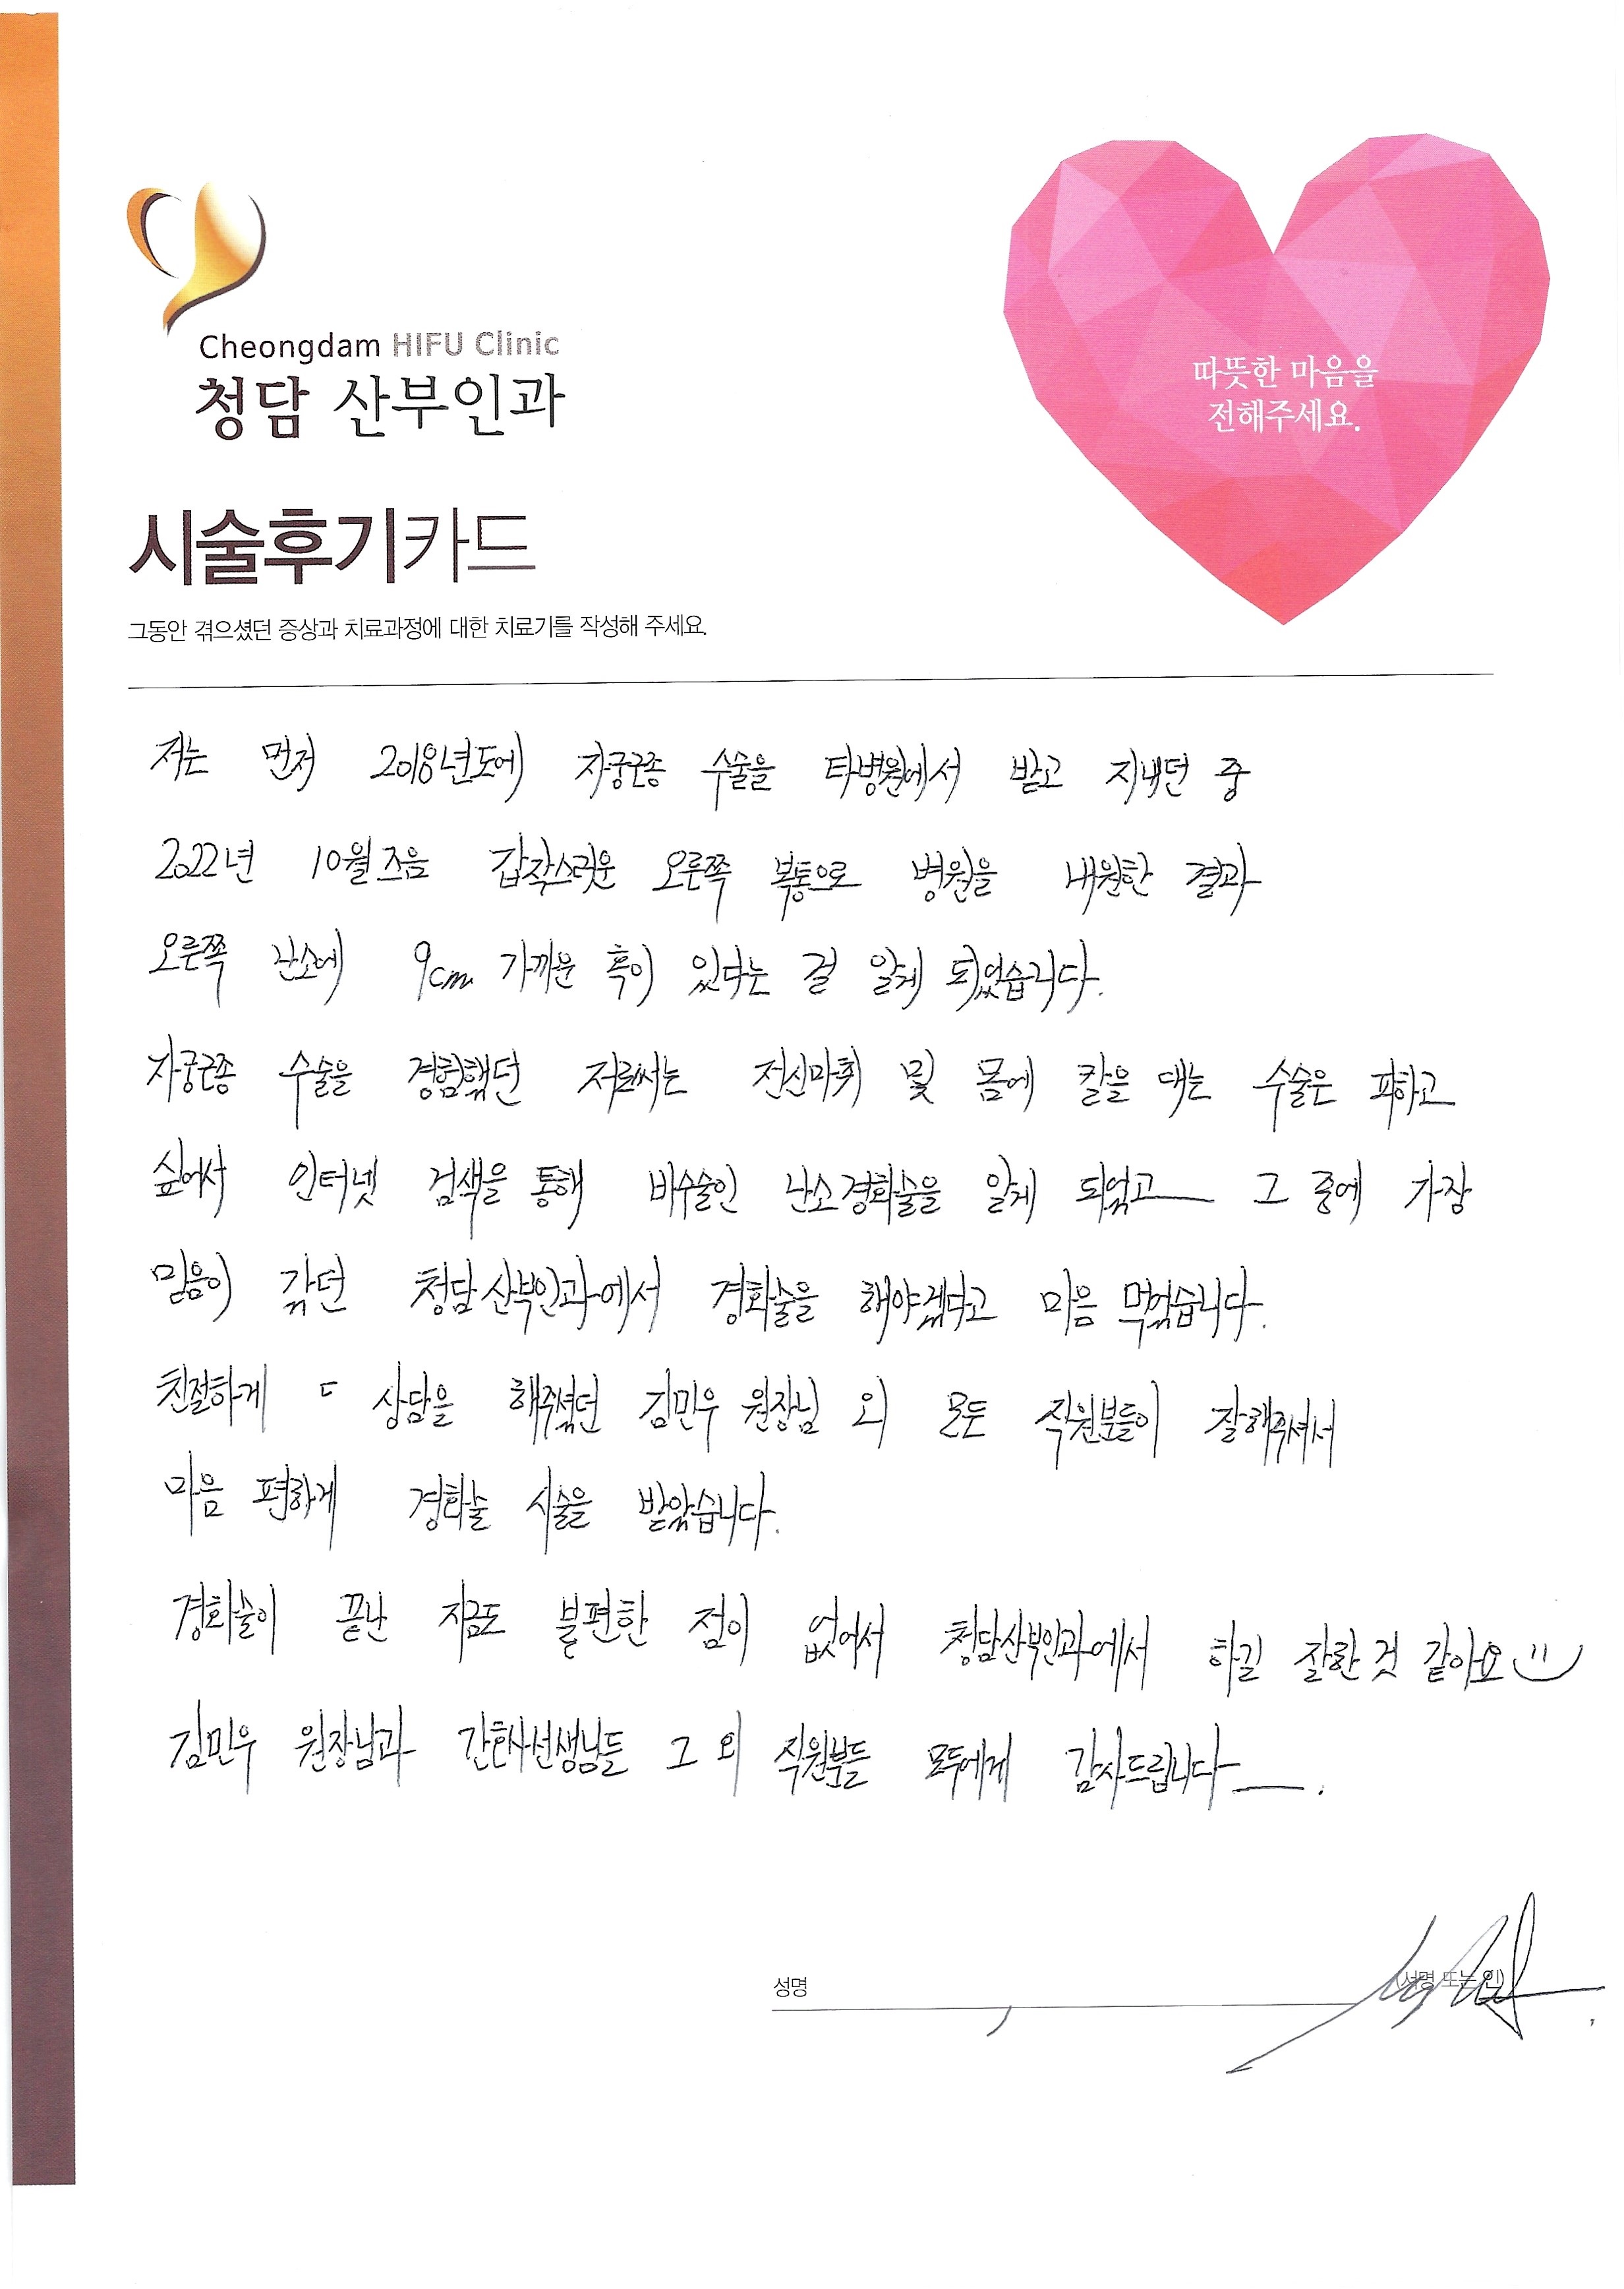 Cheongdam HIFU Clinic
청담 산부인과
따뜻한 마음을
전해주세요.
시술후기카드
그동안 겪으셨던 증상과 치료과정에 대한 치료기를 작성해 주세요.
저는 먼저 2018년도에 자궁근종 수술을 타병원에서 받고 지내던 중
2022년 10월즈음 갑작스러운 오른쪽 복통으로 병원을 내원한 결과
오른쪽 난소에 9cm 가까운 혹이 있다는 걸 알게 되었습니다.
자궁근종 수술을 경험했던 저로써는 전신마취 및 몸에 칼을 대는 수술은 피하고
싶어서 인터넷 검색을 통해 비수술인 난소경화술을 알게 되었고 그 중에 가장
믿음이 갔던 청담산부인과에서 경화술을 해야겠다고 마음 먹었습니다.
친절하게 ㄷ 상담을 해주셨던 김민우 원장님 외 모든 직원분들이 잘해주셔서
마음 편하게 경화술 시술을 받았습니다.
경화술이 끝난 지금도 불편한 점이 없어서 청담산부인과에서 하길 잘한 것 같아요
김민우 원장님과 간호사선생님들 그 외 직원분들 모두에게 감사드립니다.
성명 (서명 또는 인)